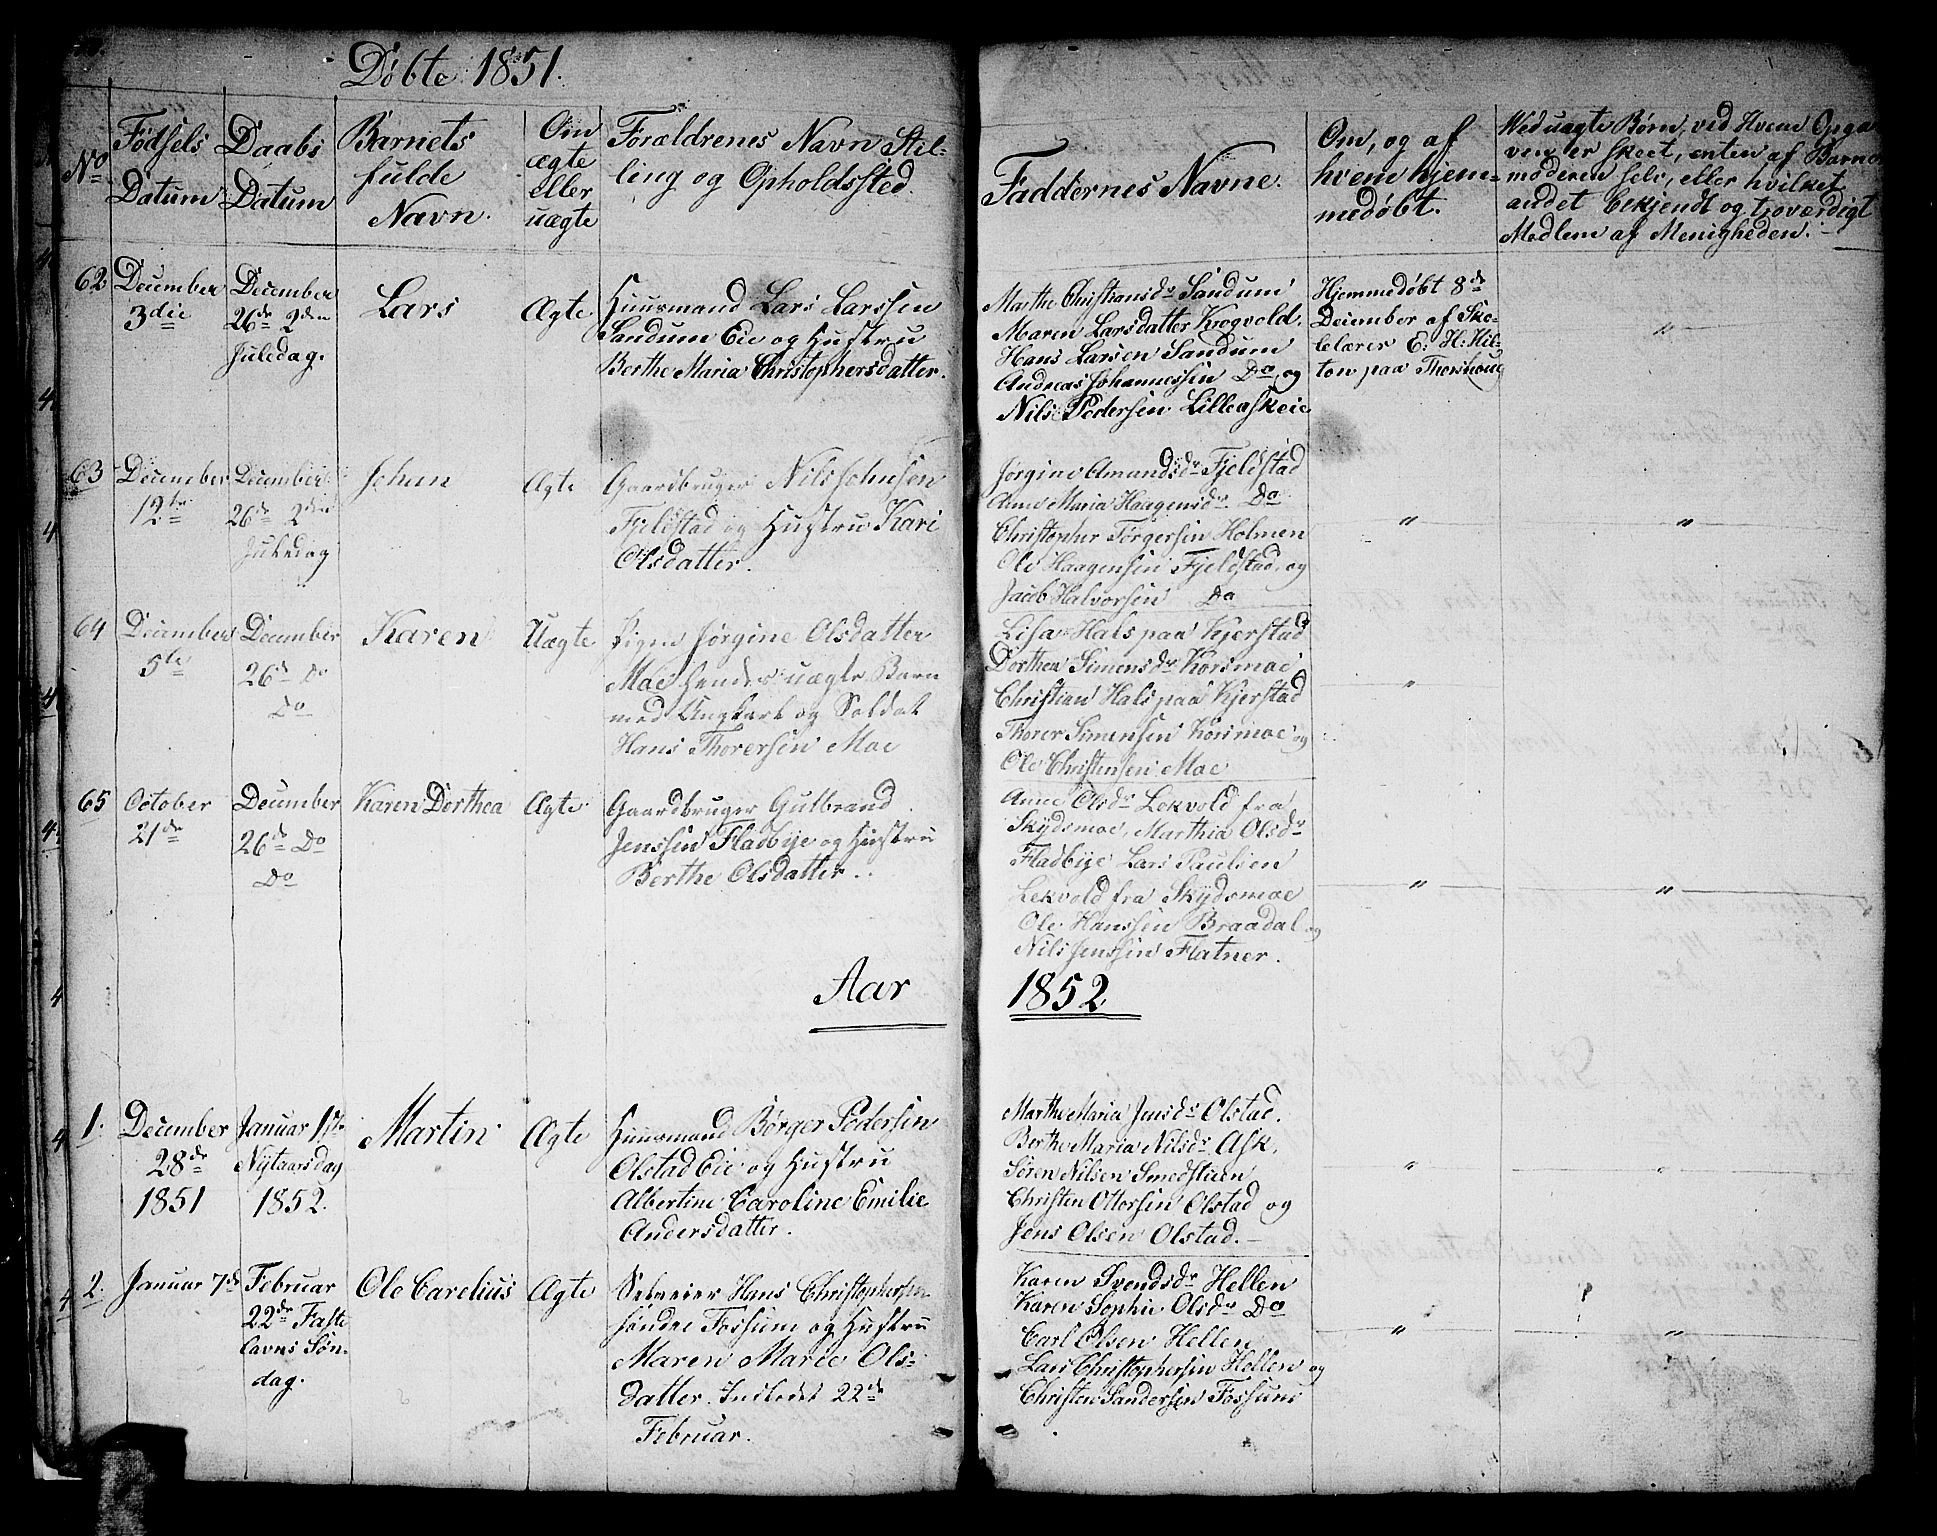 Døbte 1851.
No
Fødsels
Datum
Daabs
Datum
Barnets
fulde
Navn.
Om
ægte
eller
uægte
Forældrenes Navn Stil-
ling og Opholdssted.
Faddernes Navne.
Om, og af
hvem hjem-
medøbt.
Ved uægte Børn, ved Hvem Opga-
ven er skeet, enten af Barne
moderen selv, eller hvilket
andet bekjendt og troværdigt
Medlem af Menigheden.
62
December
3die
December
26de 2den
Juledag.
Lars
Ægte
Huusmand Lars Larssen
Sandum Eie og Hustru
Berthe Maria Christophersdatter.
Marthe Christiansdr Sandum
Maren Larsdatter Krogvold.
Hans Larsen Sandum
Andreas Johannessen Do, og
Nils Pedersen Lilleaskeie
Hjemmedøbt 8de
December af Sko-
lelærer E. H. Hil-
ton paa Thorshoug
"
63
December
12te
December
26de 2den
Juledag
Johan
Ægte
Gaardbruger Nils Johnsen
Fjeldstad og Hustru Kari
Olsdatter.
Jørgine Amandsdr Fjeldstad
Anne Maria Haagensdr Do
Christopher Torgersen Holmen
Ole Haagensen Fjeldstad, og
Jacob Halvorsen Do
"
"
64
December
5te
December
26de Do
Do
Karen
Uægte
Pigen Jørgine Olsdatter
Moe hendes uægte Barn
med Ungkarl og Soldat
Hans Thorersen Moe
Lisa Hals paa Kjerstad
Dorthea Simensdr Korsmoe
Christian Hals paa Kjerstad
Thorer Simensen Korsmoe og
Ole Christensen Moe
"
65
October
21de
December
26de Do
Do
Karen Dorthea
Ægte
Gaardbruger Gulbrand
Jenssen Fladbye og Hustru
Berthe Olsdatter.
Anne Olsdr Lekvold fra
Skydsmoe, Marthia Olsdr
Fladbye Lars Paulsen
Lekvold fra Skydsmoe
Ole Hanssen Braadal og
Nils Jenssen Flatner.
"
"
Aar 1852
1.
December
28de
1851
Januar 1ste
Nytaarsdag
1852.
Martin
Ægte
Huusmand Børger Pedersen
Olstad Eie og Hustru
Albertine Caroline Emilie
Andersdatter.
Marthe Maria Jensdr Olstad.
Berthe Maria Nilsdr Ask,
Søren Nilsen Smedstuen
Christen Ottersen Olstad og
Jens Olsen Olstad.
"
"
2.
Januar 7de
Februar
22de Faste
lavns Søn-
dag.
Ole Carelius
Ægte
Selveier Hans Christophersen
søndre Fossum og Hustru
Maren Marie Ols-
datter. Indledet 22de
Februar.
Karen Svendsdr Hellen
Karen Sophie Olsdr Do
Carl Olsen Hellen
Lars Christophersen Hellen og
Christen Sandersen Fossum
"
"